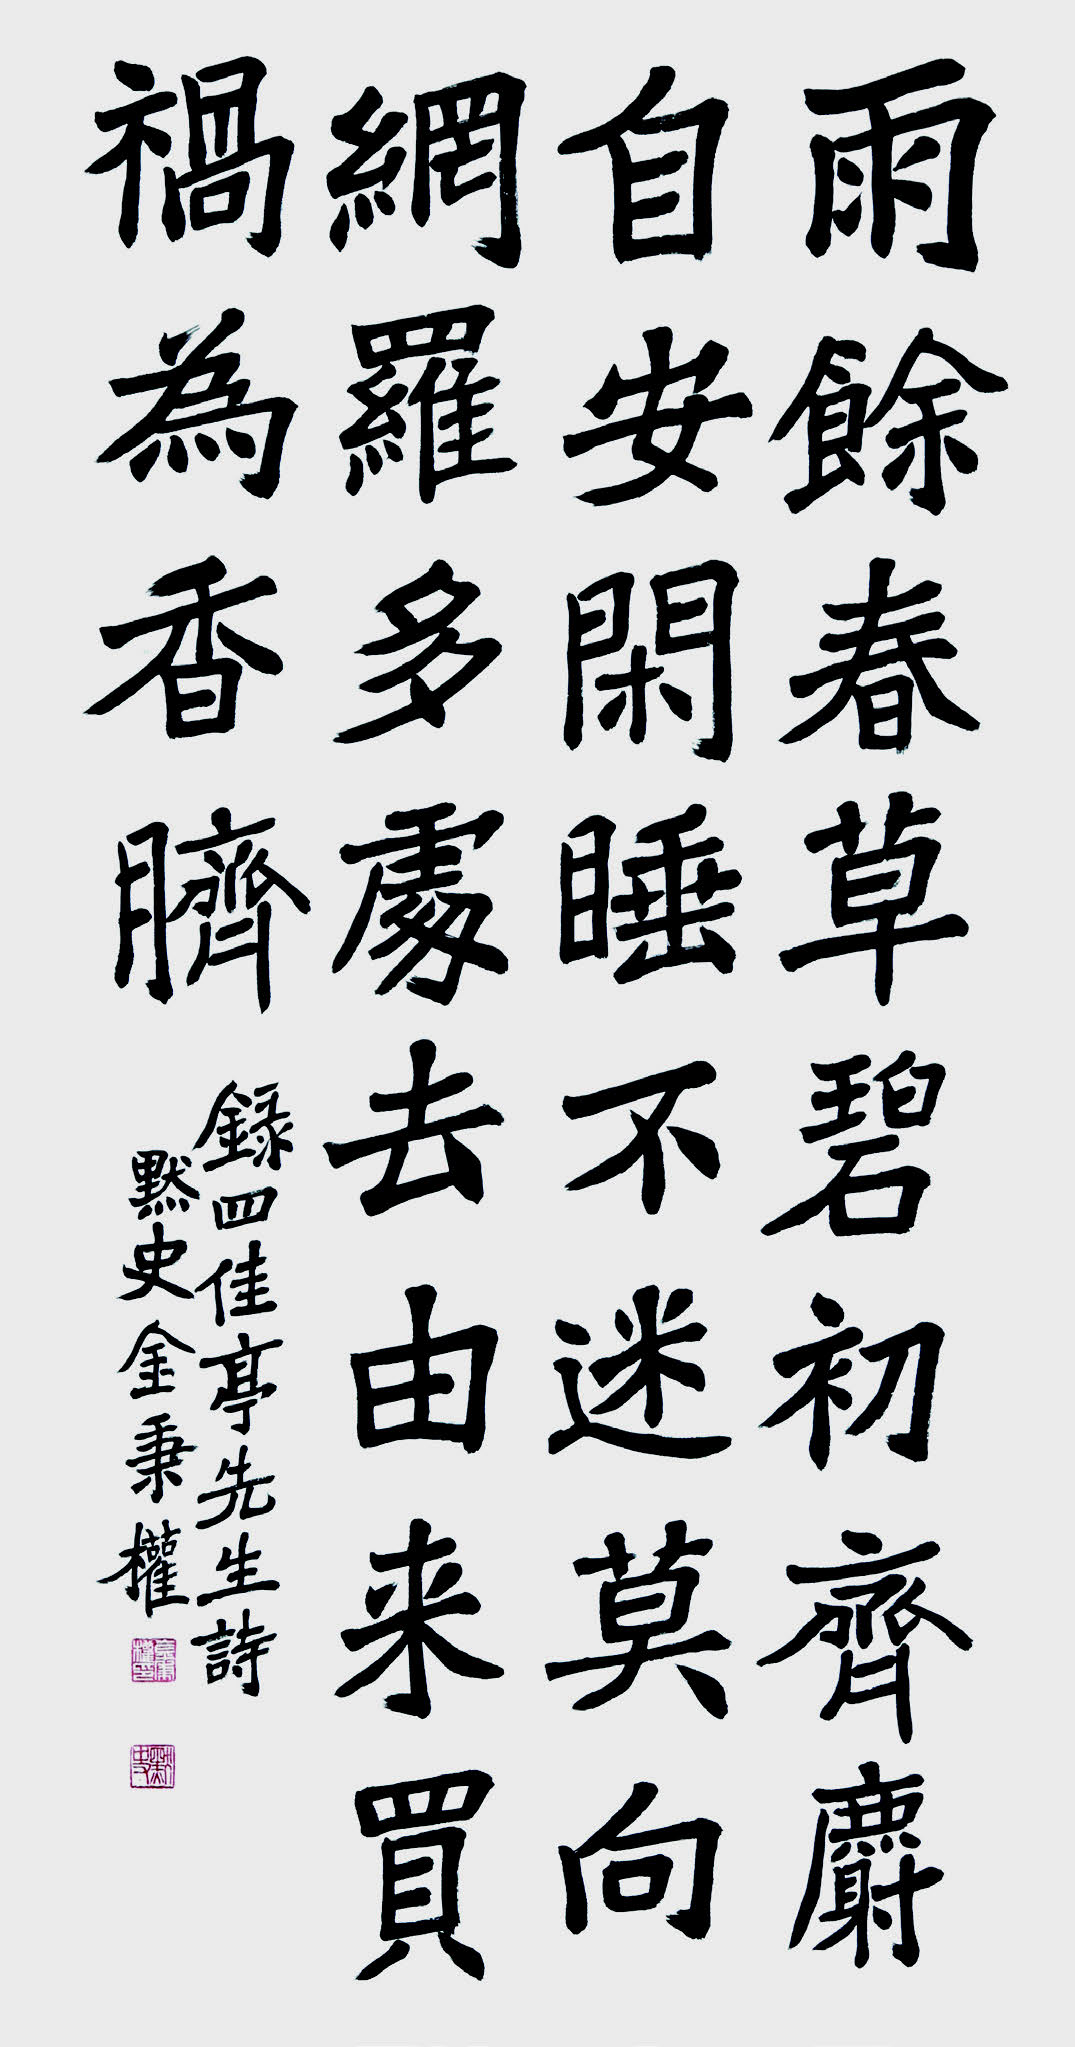 雨餘春草碧初齊麝
自安閑睡不迷莫向
網羅多處去由来買
禍為香臍
錄四佳亭先生詩
默史金秉權